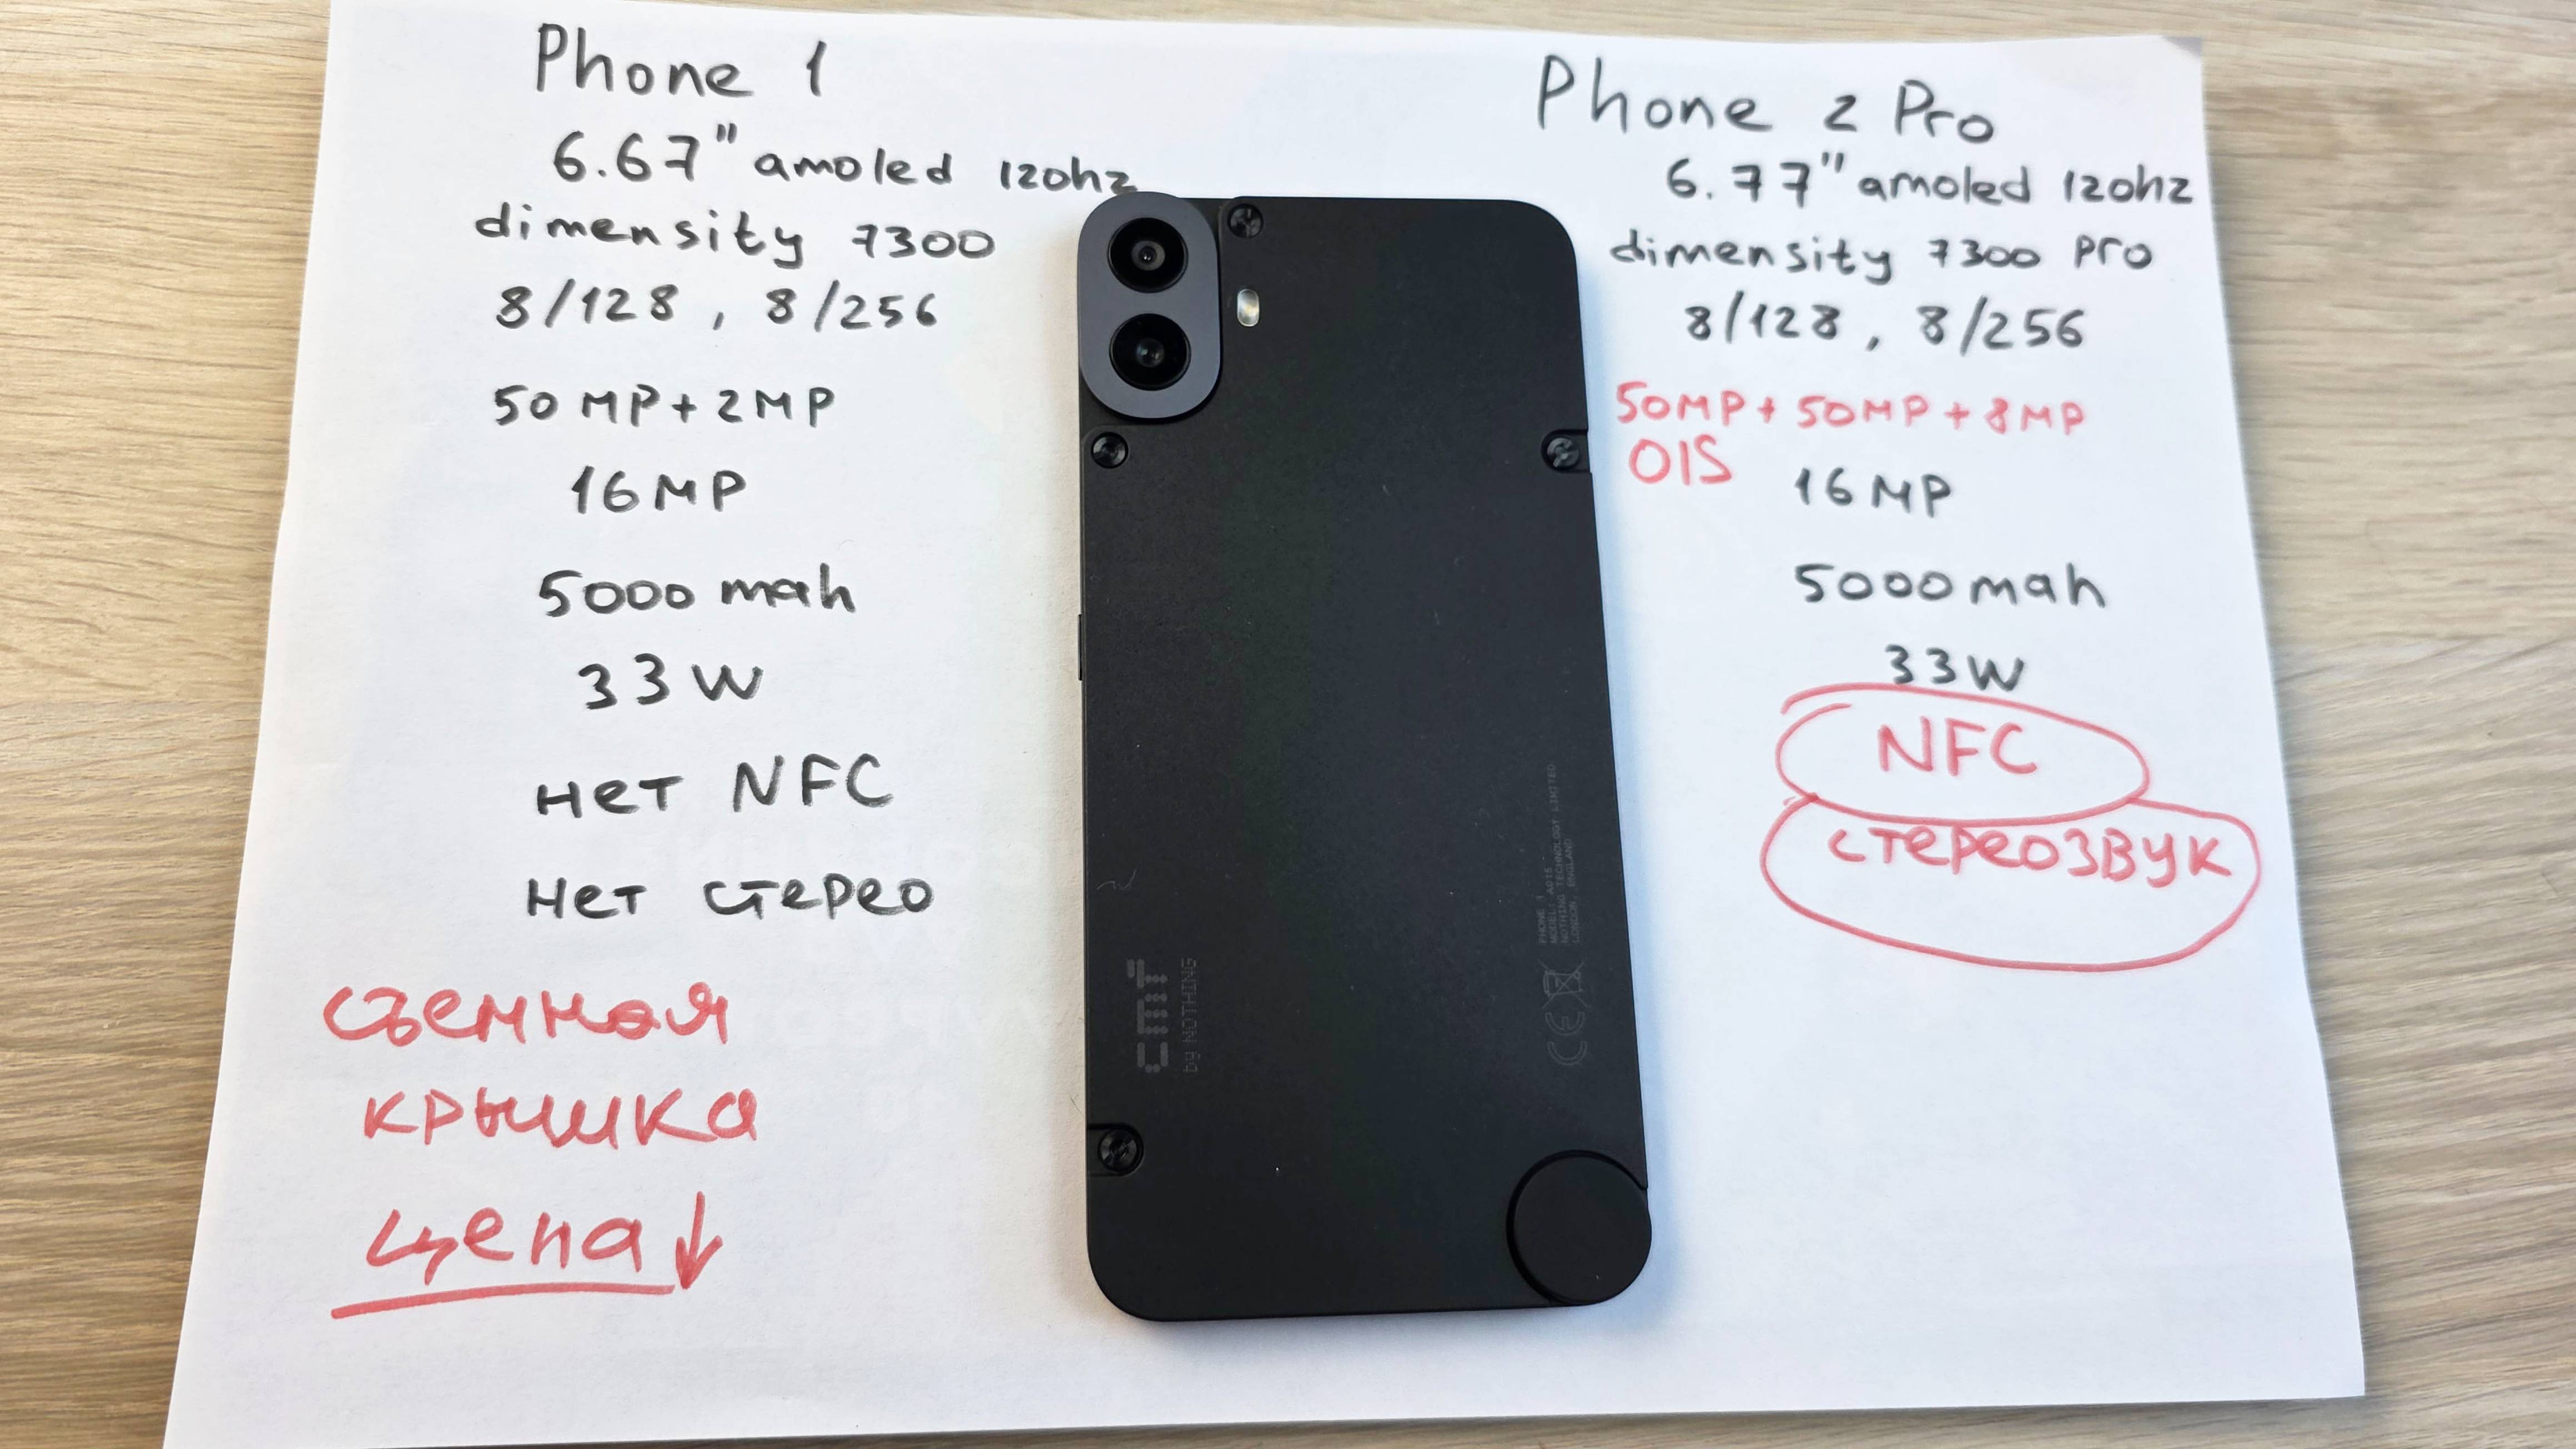 Phone 1
6.67" amoled 120hz
dimensity 7300
8/128, 8/256
50MP+2MP
16MP
5000 mah
33W
нет NFC
нет стерео
съемная
крышка
цена↓
cmf
by NOTHING
PHONE 1
MODEL: A015
NOTHING TECHNOLOGY LIMITED
LONDON, ENGLAND
CE
Phone 2 Pro
6.77" amoled 120hz
dimensity 7300 pro
8/128, 8/256
50MP+50MP+8MP
OIS
16MP
5000mah
33W
NFC
стереозвук